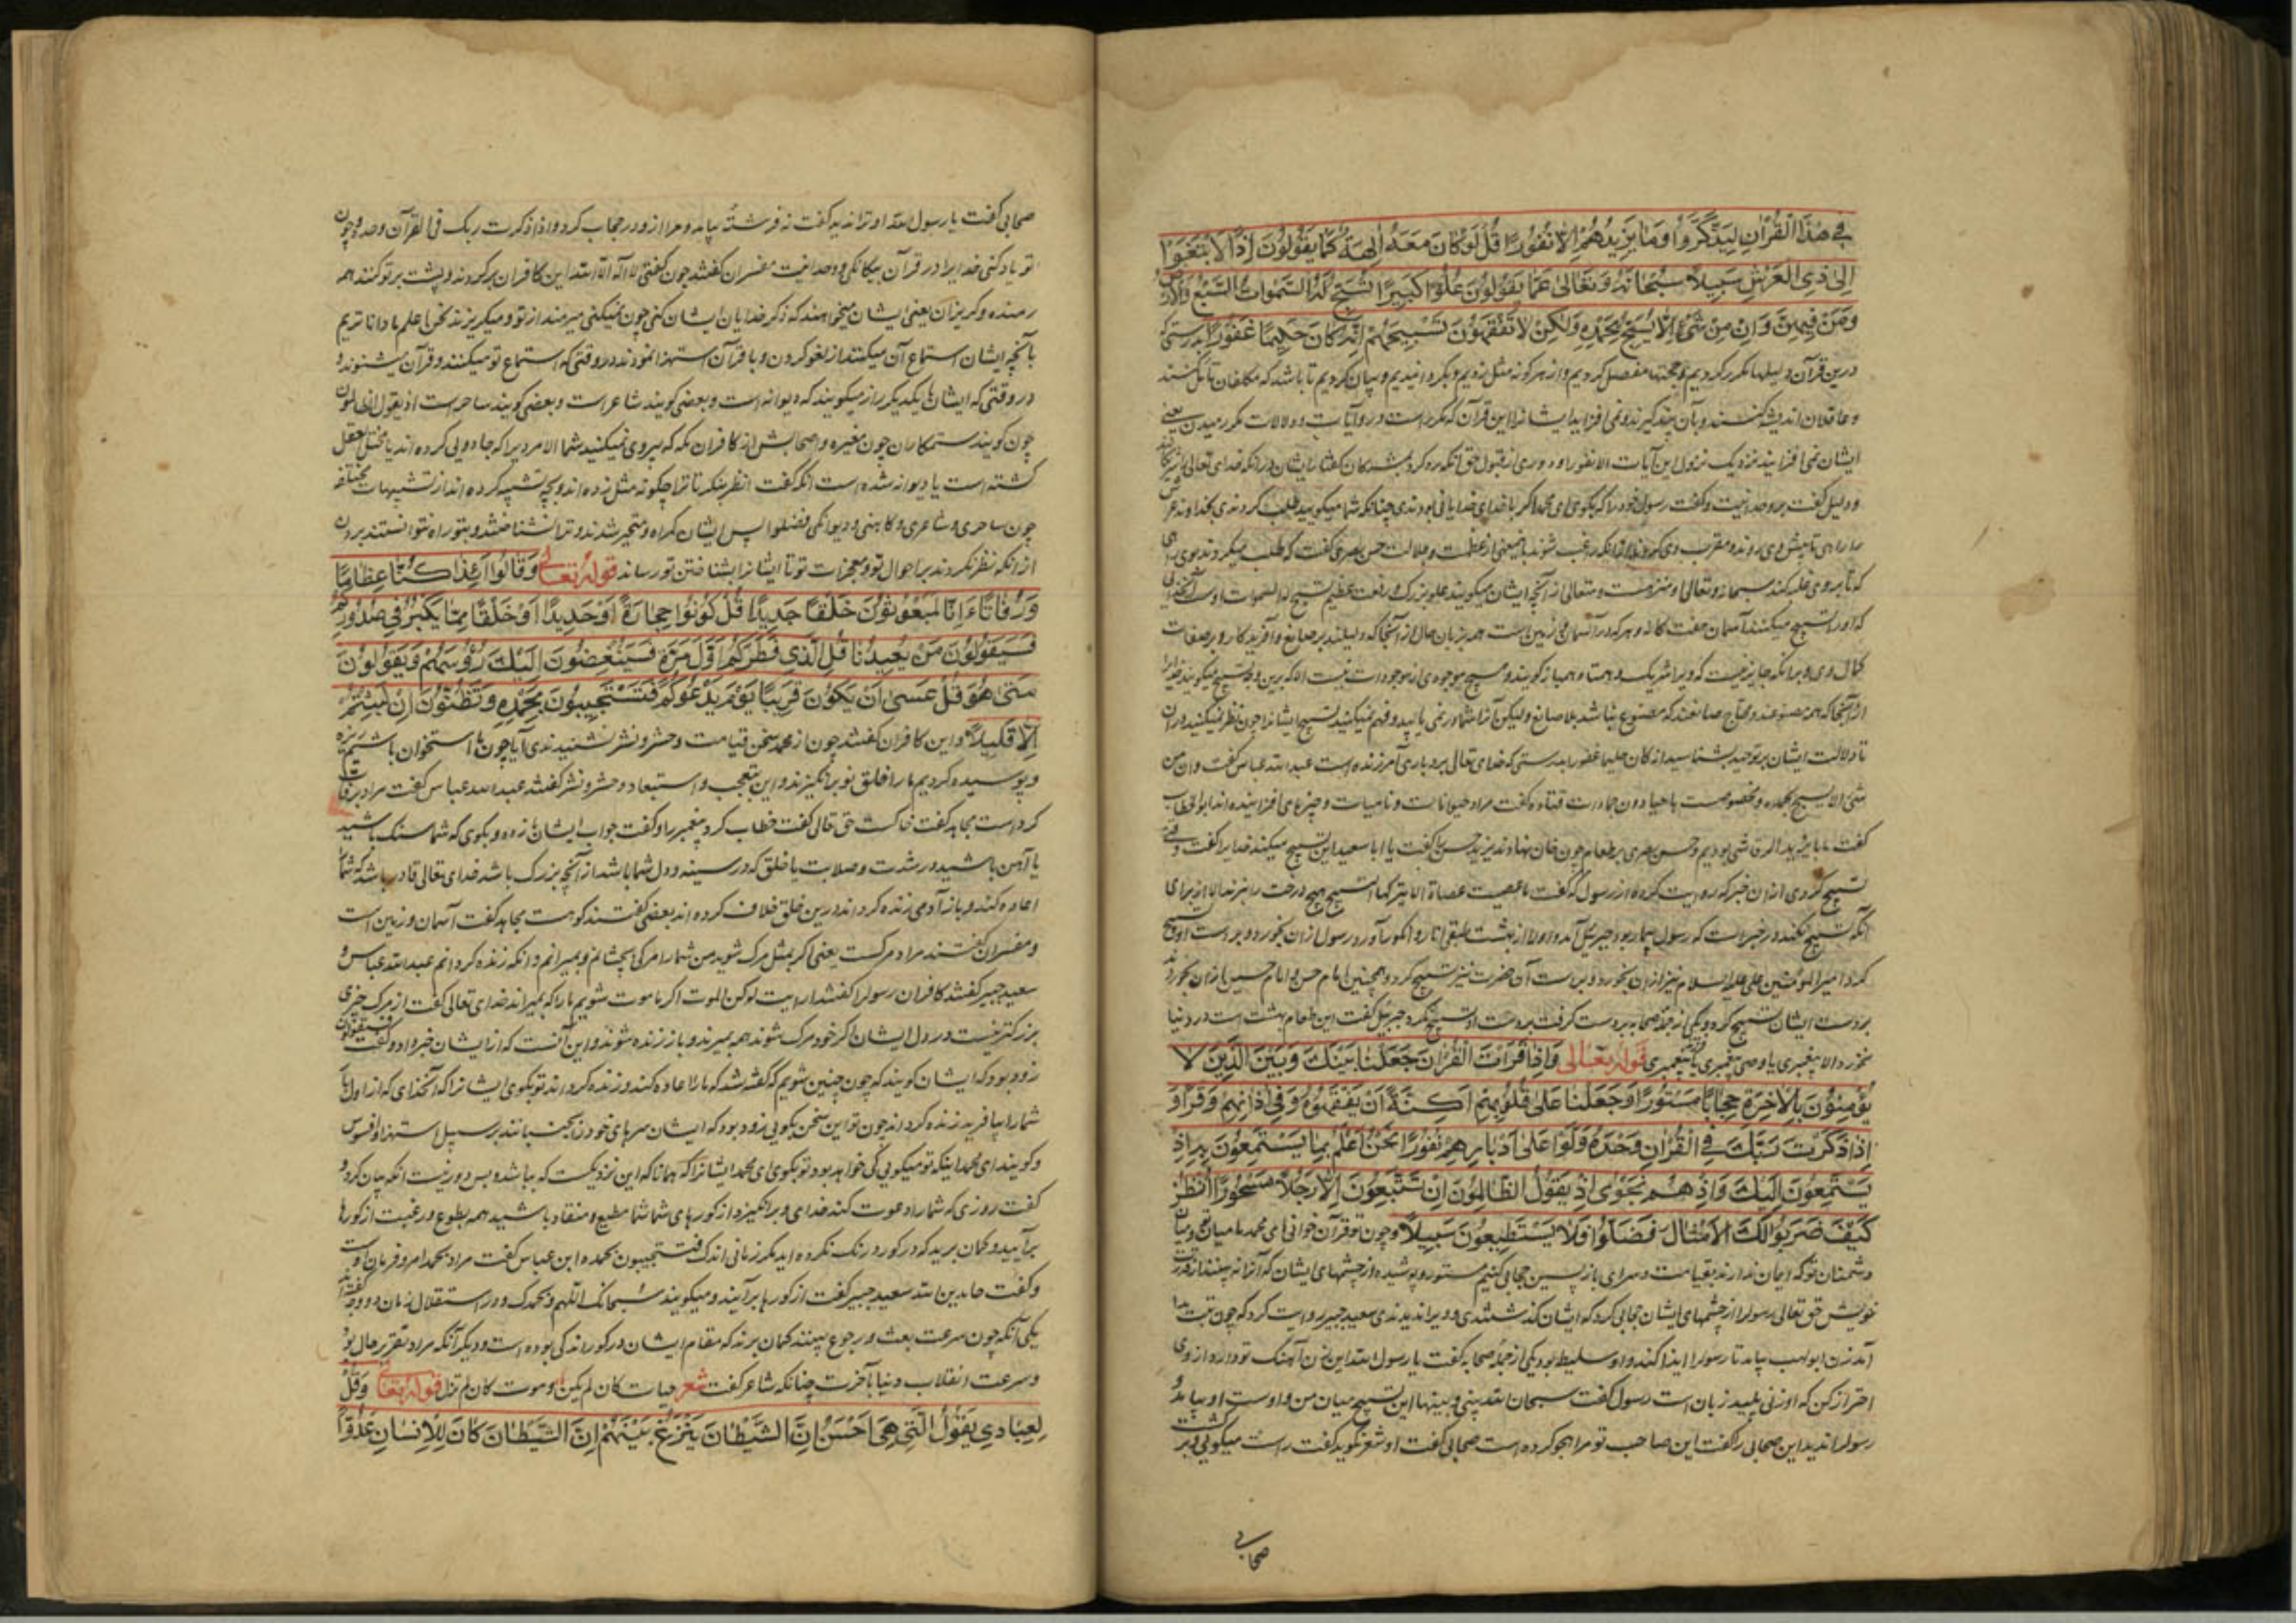 في هذا القرآن ليذكروا وما يزيدهم إلا نفورا قل لو كان معه آلهة كما يقولون إذا لابتغوا
إلى ذي العرش سبيلا سبحانه وتعالى عما يقولون علوا كبيرا تسبح له السموات السبع والأرض
ومن فيهن وإن من شيء إلا يسبح بحمده ولكن لا تفقهون تسبيحهم إنه كان حليما غفورا بدرستی که
درین قرآن دلیلها مکرر کردیم و حجتها مفصل کردیم و از هر گونه مثل زدیم و بگردانیدیم و بیان کردیم تا باشد که مکلفان تامل کنند
و عاقلان اندیشه کنند و بآن پند گیرند و نمی افزاید ایشانرا این قرآن که مکرر است در و آیات و دلالات مکرر
ایشان نمی افزایند نزدیک نزول این آیات الا نفور او دوری از قبول حق
و دلیل گفت بر وحدانیت و گفت رسول خود را که بگوی ای محمد اگر با خدای خدایانی بودندی چنانکه شما میگویید طلب کردندی
حسن بصری گفت که طلب میکردندی
که تا بر وی غلبه کنند سبحانه و تعالی او منزهست و متعالی از آنچه ایشان میگویند علو بزرگ و رفعت عظیم تسبح له السموات
که او را تسبیح میکنند آسمان هفت گانه و هر که در آسمان و زمین است همه بزبان حال از آنجا که دلیلند بر صانع و آفریدگار و بر صفات
کمال وی و بر آنکه جایز نیست که ویرا شریک و همتا و همباز گویند و هیچ موجودی از موجودات نیست الا که برین وجه تسبیح میگویند
از آنجا که همه مصنوعند و محتاج صانعند که مصنوع نباشد بلا صانع و لیکن آنرا شما در نمی یابید و فهم نمیکنید تسبیح ایشانرا چون نظر نمیکنید در آن
تا دلالت ایشان بر توحید بشناسید انه کان حلیما غفورا بدرستی که خدای تعالی بردبار و آمرزنده است عبدالله عباس گفت و ان من
شیء الا یسبح بحمده مخصوصست باحیا دون جمادات قتاده گفت مراد حیواناتست و نامیات و چیزهای افزاینده اند ابو الخطاب
گفت ما با یزید الرقاشی بودیم و حسن بصری بر طعام چون خان نهادند یزید حسن را گفت یا ابا سعید این تسبیح میکند خدایرا گفت وقتی
تسبیح کردی
آنکه تسبیح نکند در خبر است که رسول بیمار بود جبرئیل آمد و او را از بهشت طبقی انار و انگور آورد رسول ازان بخورد و بر دست او تسبیح
کرد امیر المؤمنین علی علیه السلام نیز ازان بخورد و بر دست آن حضرت نیز تسبیح کرد و همچنین امام حسن و امام حسین ازان بخوردند
بر دست ایشان تسبیح کرد و یکی از جمله صحابه بر دست گرفت بر دست او تسبیح نکرد جبرئیل گفت این طعام بهشت است در دنیا
نخورد الا پیغمبری یا وصی پیغمبری یا فرزند پیغمبری قوله تعالى وإذا قرأت القرآن جعلنا بينك وبين الذين لا
يؤمنون بالآخرة حجابا مستورا وجعلنا على قلوبهم أكنة أن يفقهوه وفي آذانهم وقرا و
إذا ذكرت ربك في القرآن وحده ولوا على أدبارهم نفورا نحن أعلم بما يستمعون به إذ
يستمعون إليك وإذ هم نجوى إذ يقول الظالمون إن تتبعون إلا رجلا مسحورا انظر
كيف ضربوا لك الأمثال فضلوا فلا يستطيعون سبيلا و چون تو قرآن خوانی ای محمد ما میان تو و میان
دشمنان تو که ایمان ندارند بقیامت و سرای بازپسین حجابی کنیم مستور و پوشیده از چشمهای ایشان که آنرا نه بینند از قدرت
خویش حق تعالی رسولرا از چشمهای ایشان حجابی کرد که ایشان گذشتندی و ویرا ندیدندی سعید جبیر روایت کرد که چون تبت یدا
آمد زن ابولهب بیامد تا رسولرا ایذا کند و او سلیطه بود یکی از جمله صحابه گفت یا رسول الله این زن آهنگ تو دارد از وی
احتراز کن که او زنی پلید زبان است رسول گفت سبحان الله بینی و بینها این تسبیح میان من و اوست او بیامد و
رسولرا ندید این صحابی را گفت این صاحب تو مرا هجو کرده است صحابی گفت او شعر نگوید گفت راست میگویی
صحابی
صحابی گفت یا رسول الله او ترا ندید گفت نه فرشتهٔ بیامد و مرا از و در حجاب کرد و اذا ذکرت ربک فی القرآن وحده و چون
تو یاد کنی خدایرا در قرآن بیگانگی و وحدانیت مفسران گفتند چون گفتی لا اله الا الله این کافران برگردند و پشت بر تو کنند همه
رمنده و گریزان یعنی ایشان میخواهند که ذکر خدایان ایشان کنی چون نمیکنی میرمند از تو و میگریزند نحن اعلم ما داناتریم
بآنچه ایشان استماع آن میکنند از لغو کردن و با قرآن استهزا نمودند در وقتی که استماع تو میکنند و قرآن میشنوند و
در وقتی که ایشان با یکدیگر راز میگویند که دیوانه است و بعضی گویند شاعر است و بعضی گویند ساحر است اذ یقول الظالمون
چون گویند ستمکاران چون مغیره و اصحابش از کافران مکه که پیروی نمیکنید شما الا مردیرا که جادویی کرده اند یا مختل العقل
گشته است یا دیوانه شده است آنکه گفت انظر بنگر تا ترا چگونه مثل زده اند و بچه تشبیه کرده اند از تشبیهات مختلفه
چون ساحری و شاعری و کاهنی و دیوانگی فضلوا پس ایشان گمراه و متحیر شدند و ترا نشناختند و بتو راه نتوانستند بردن
از آنکه نظر نکردند بر احوال تو و معجزات تو تا ایشانرا بشناختن تو رساند قوله تعالى وقالوا أئذا كنا عظاما
ورفاتا ءانا لمبعوثون خلقا جديدا قل كونوا حجارة أو حديدا أو خلقا مما يكبر في صدوركم
فسيقولون من يعيدنا قل الذي فطركم أول مرة فسينغضون إليك رؤوسهم ويقولون
متى هو قل عسى أن يكون قريبا يوم يدعوكم فتستجيبون بحمده وتظنون إن لبثتم
إلا قليلا و این کافران گفتند چون از محمد سخن قیامت و حشر و نشر شنیدندی آیا چون ما استخوان باشیم ریزه
و پوسیده گردیم ما را خلق نو برانگیزند و این بتعجب و استبعاد و حشر و نشر گفتند عبدالله عباس گفت مراد برفات
گرد است مجاهد گفت خاکست حق تعالی گفت خطاب کرد پیغمبر را و گفت جواب ایشان باز ده و بگوی که شما سنگ باشید
یا آهن باشید در شدت و صلابت یا خلق که در سینه و دل شما باشد از آنچه بزرگ باشد خدای تعالی قادر باشد که شما
اعاده کند و باز آدمی زنده گرداند درین خلق خلاف کرده اند بعضی گفتند کوهست مجاهد گفت آسمان و زمین است
و مفسران گفتند مراد مرگست یعنی اگر بمثل مرگ شوید من شما را مرگ بچشانم و بمیرانم و آنکه زنده گردانم عبدالله عباس و
سعید جبیر گفتند کافران رسولرا گفتند ارایت لو کنا الموت اگر ما موت شویم ما را که بمیراند خدای تعالی گفت از مرگ چیزی
بزرگتر نیست در دل ایشان اگر خود مرگ شوند همه بمیرند و باز زنده شوند و این آنست که از ایشان خبر داد و گفت فسیقولون
زود بود که ایشان گویند که چون چنین شویم که گفته شد که ما را اعاده کند و زنده گرداند تو بگوی ایشانرا که آنخدای که از اول بار
شما را بیافرید زنده گرداند چون تو این سخن بگویی زود بود که ایشان سرهای خود را بجنبانند بر سبیل استهزا و افسوس
و گویند ای محمد اینکه تو میگویی کی خواهد بود تو بگوی ای محمد ایشانرا که همانا که این نزدیکست که بباشد و بس دور نیست آنکه بیان کرد و
گفت روزی که شما را دعوت کند خدای و برانگیزد از گورهای شما شما مطیع و منقاد باشید همه بطوع و رغبت از گورها
برآیید و گمان برید که در گور درنگ نکرده اید مگر زمانی اندک فتستجیبون بحمده ابن عباس گفت مراد بحمد امر و فرمان اوست
و گفت حامدین لله سعید جبیر گفت از گورها برآیند و میگویند سبحانک اللهم و بحمدک و در استقلال زمان دو وجه گفته اند
یکی آنکه چون سرعت بعث و رجوع بینند گمان برند که مقام ایشان در گور اندکی بوده است و دیگر آنکه مراد تقریر حال بود
و سرعت انقلاب دنیا بآخرت چنانکه شاعر گفت شعر حیات کان لم یکن و موت کان لم تزل قوله تعالى وقل
لعبادي يقول التي هي أحسن إن الشيطان ينزغ بينهم إن الشيطان كان للإنسان عدوا